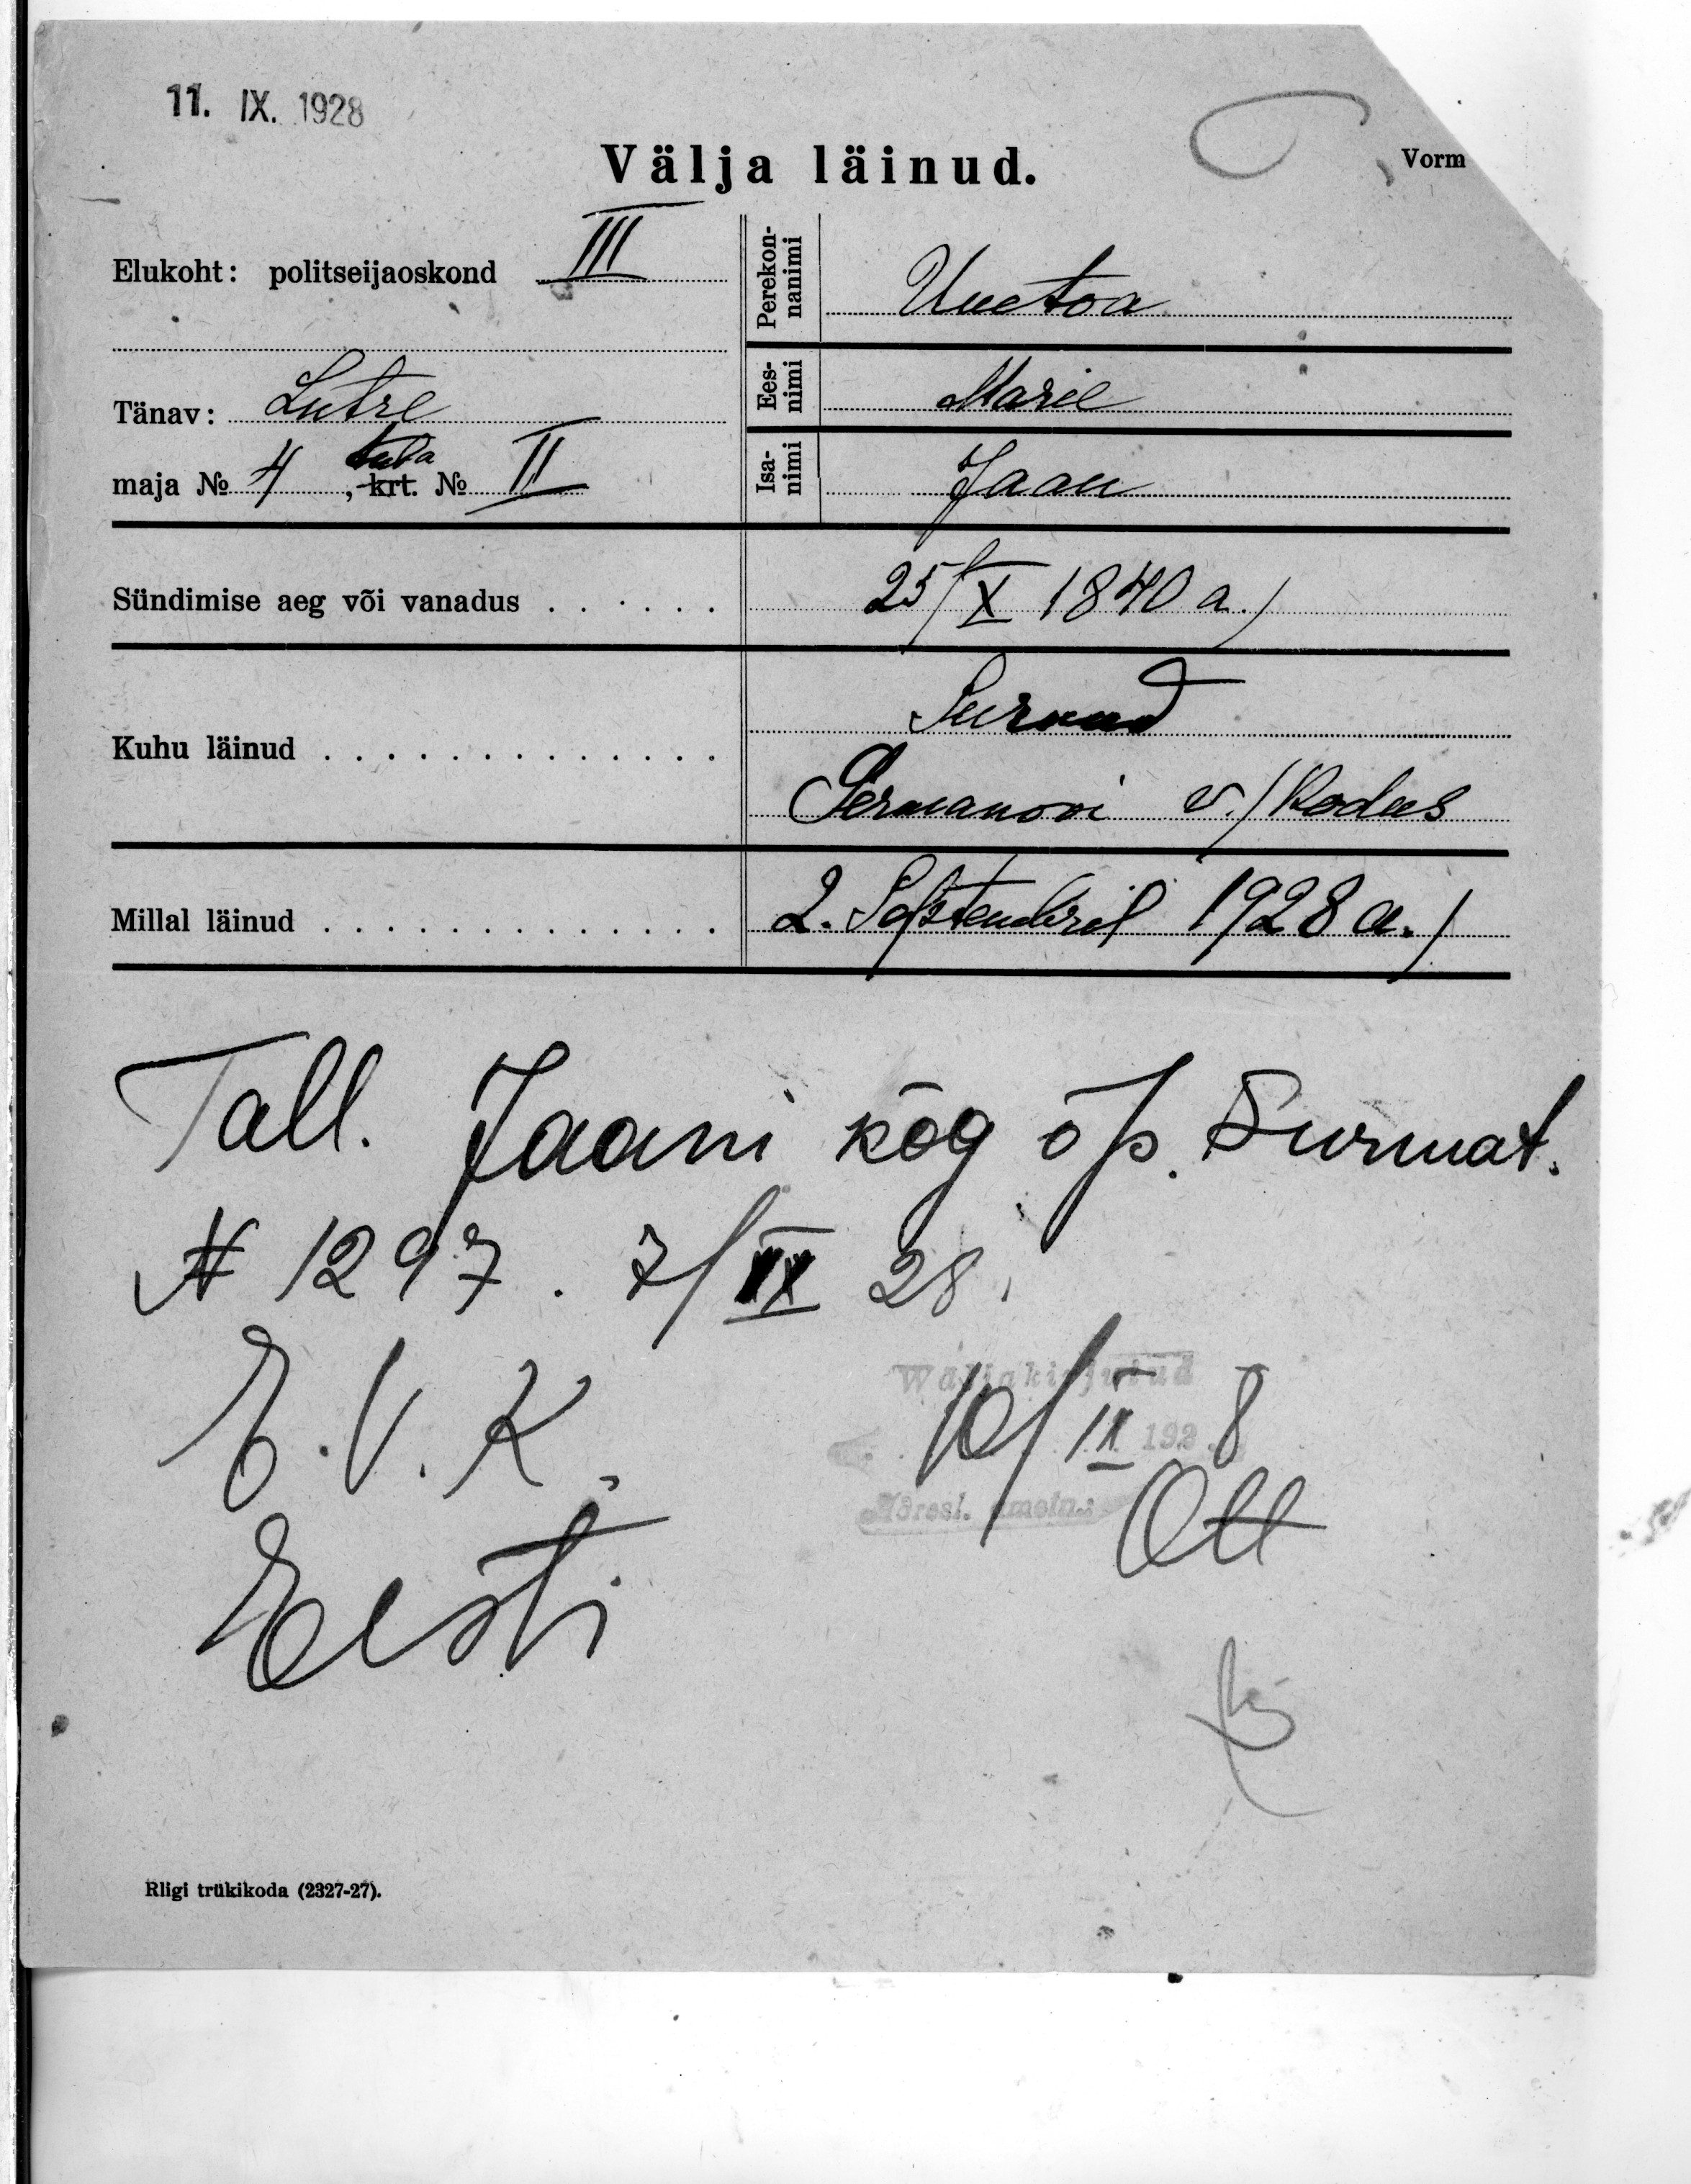 11. IX. 1928
Välja läinud.
Vorm
Elukoht: politseijaoskond III
Perekonnanimi Uuetoa
Tänav: Lutre
Eesnimi Marie
maja № 4, krt. tuba № II
Isanimi Jaan
Sündimise aeg või vanadus . . . . . . 25/X 1840 a./
Kuhu läinud . . . . . . . . . . . . . Surnud
Germanovi v./Kodus
Millal läinud . . . . . . . . . . . . . 2. Septembril 1928 a./
Tall. Jaani kog õp. Surmat.
N 1297. 7/IX 28.
E.V.K.
Wäljakirjutud
10/IX 192 8
Adresl. ametn.:
Ott
Eesti
Riigi trükikoda (2327-27).